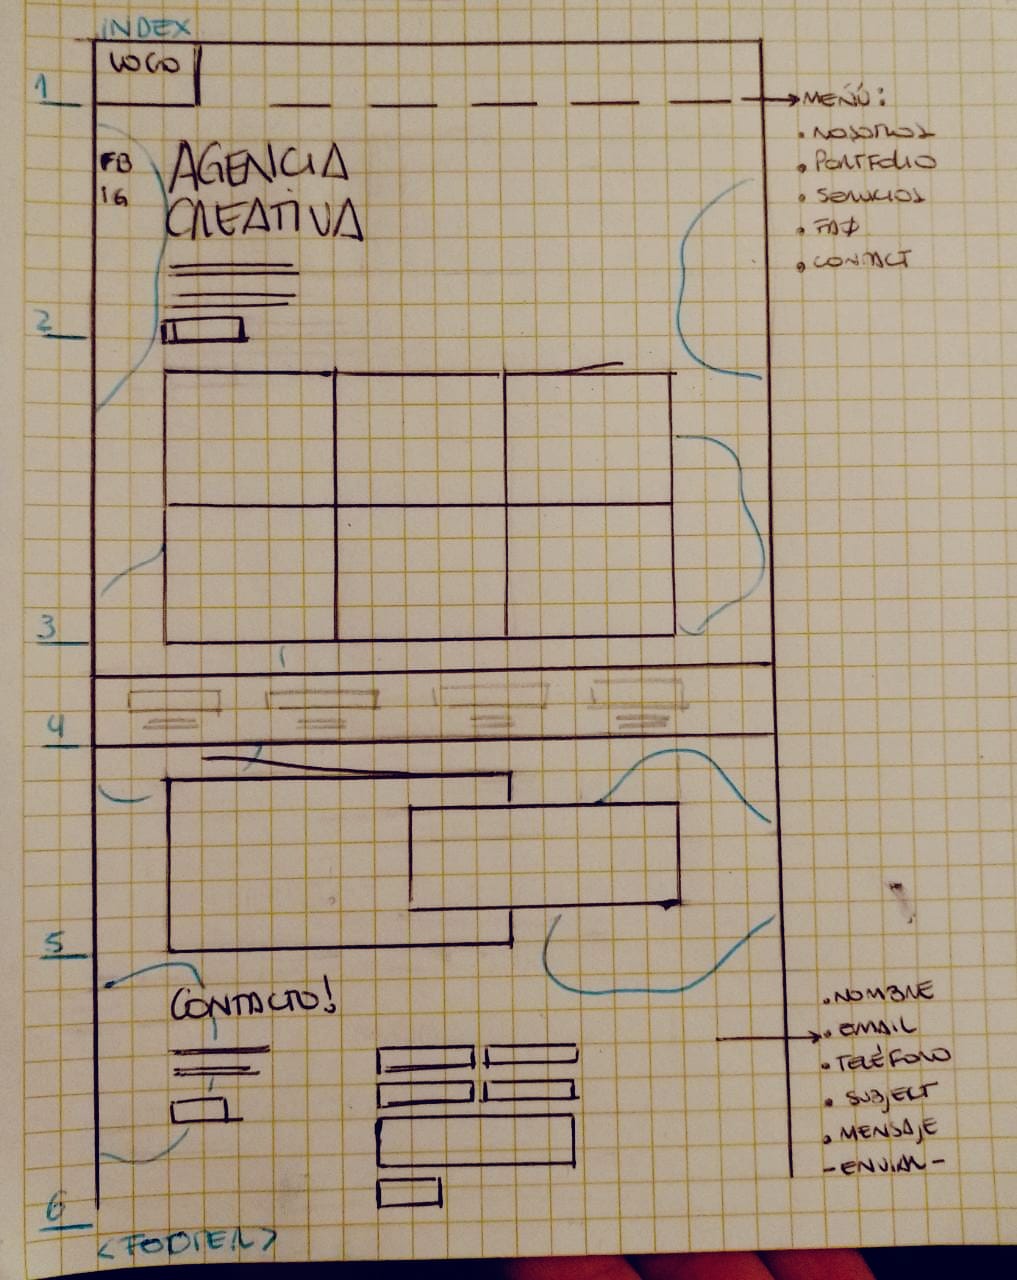 INDEX
LOGO
1
MENÚ:
• NOSOTROS
• PORTFOLIO
• SERVICIOS
• FAQ
• CONTACT
FB
IG
AGENCIA
CREATIVA
2
3
4
5
CONTACTO!
• NOMBRE
• EMAIL
• TELÉFONO
• SUBJECT
• MENSAJE
- ENVIAR -
6
<FOOTER>